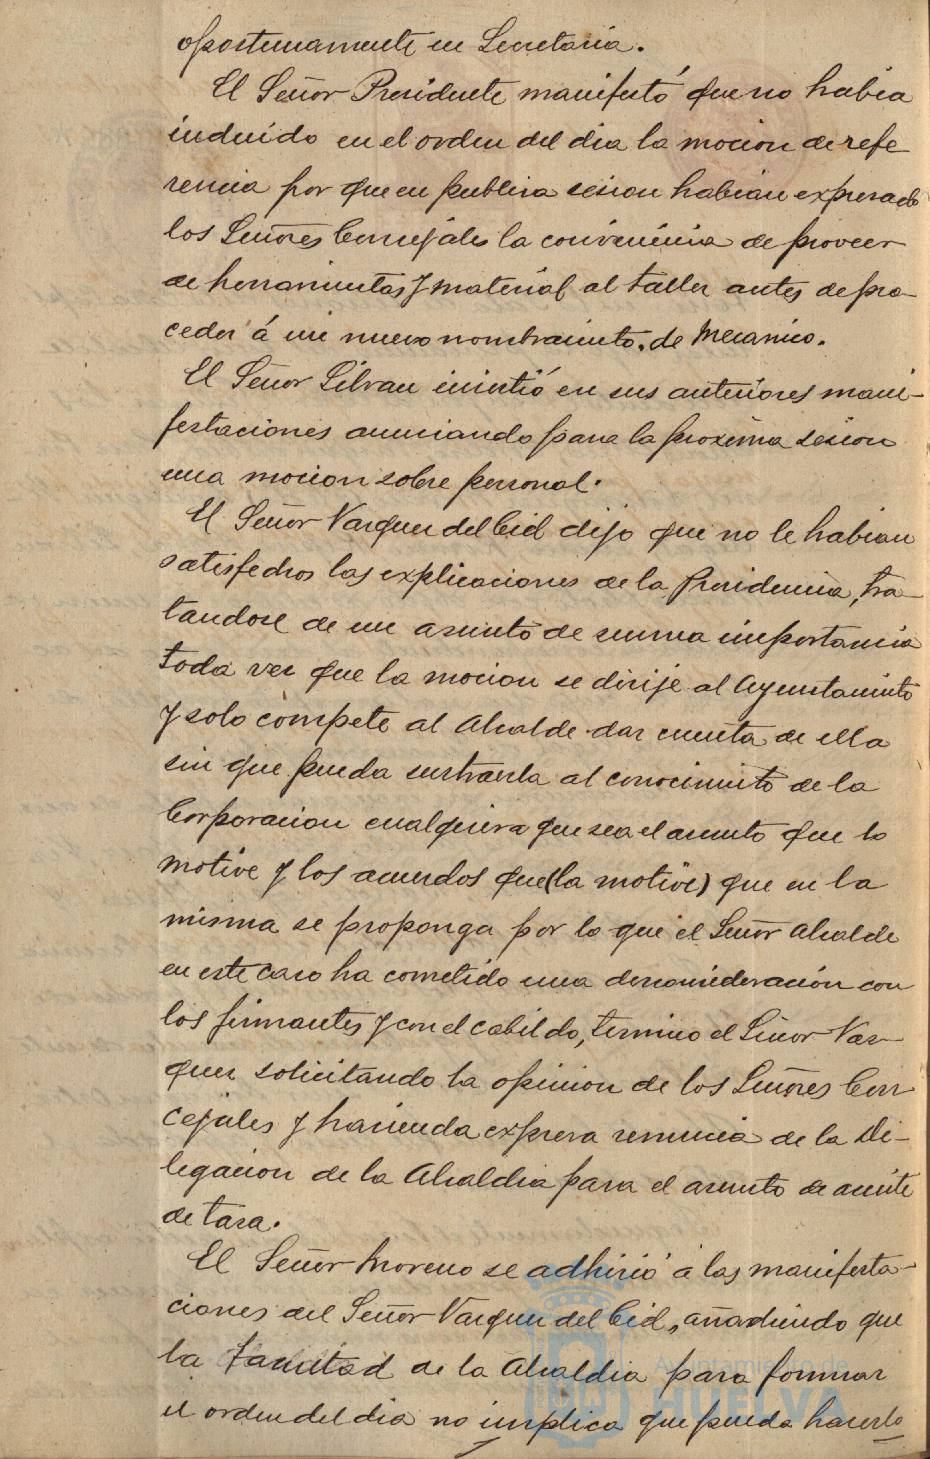 oportunamente en Secretaria.
El Señor Presidente manifestó que no habia
incluido en el orden del dia la mocion de refe
rencia por que en publica sesion habian expresado
los Señores Concejales la conveniencia de proveer
de herramientas y material al taller antes de pro-
ceder á un nuevo nombramiento de Mecanico.
El Señor Silvan insistió en sus anteriores mani-
festaciones anunciando para la proxima sesion
una mocion sobre personal.
El Señor Vazquez del Cid dijo que no le habian
satisfechos las explicaciones de la Presidencia, tra-
tandose de un asunto de suma importancia
toda vez que la mocion se dirije al Ayuntamiento
y solo compete al Alcalde dar cuenta de ella
sin que pueda sustraerla al conocimiento de la
Corporacion cualquiera que sea el asunto que lo
motive y los acuerdos que (la motive) que en la
misma se proponga por lo que el Señor Alcalde
en este caso ha cometido una desconsideración con
los firmantes y con el cabildo, termino el Señor Vaz-
quez solicitando la opinion de los Señores Con
cejales y haciendo expresa renuncia de la De-
legacion de la Alcaldia para el asunto de aceite
de tasa.
El Señor Moreno se adhirió á las manifesta-
ciones del Señor Vazquez del Cid, añadiendo que
la facultad de la Alcaldia para formar
el orden del dia no implica que pueda hacerlo
Ayuntamiento de
HUELVA